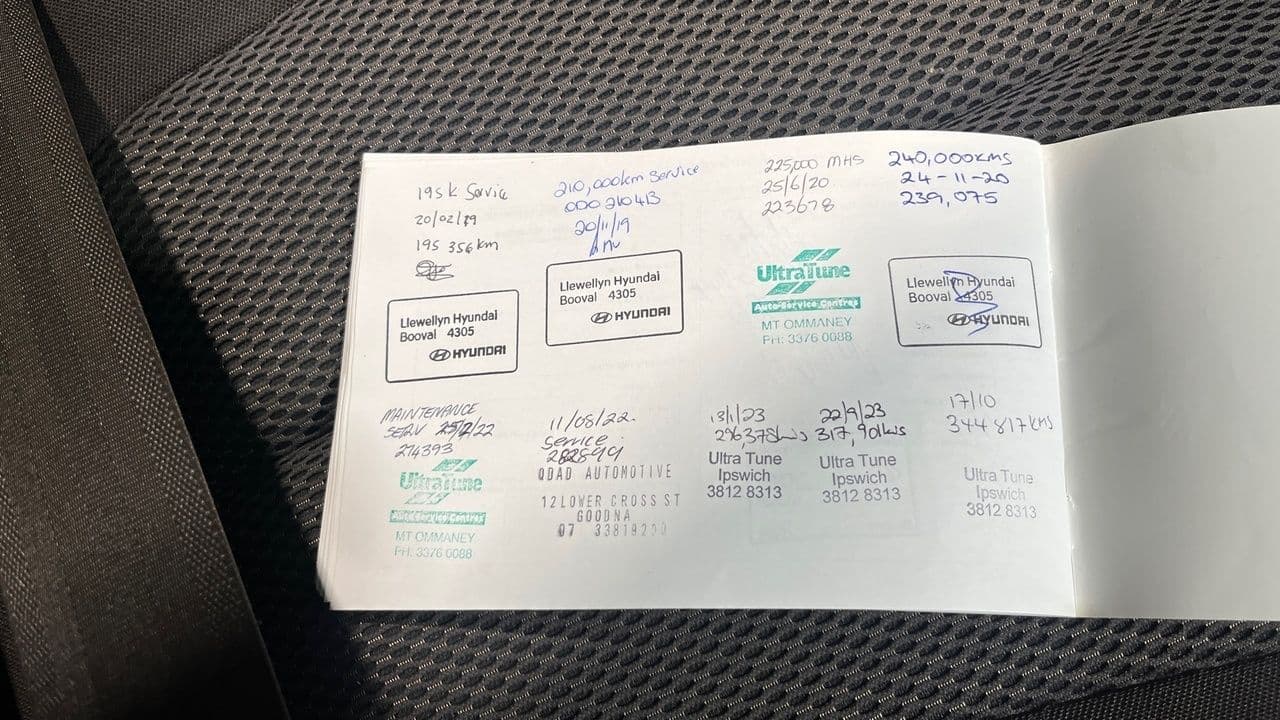 195k Service
20/02/19
195 356km
Llewellyn Hyundai
Booval 4305
HYUNDAI
210,000km Service
ODO 210413
20/11/19
Llewellyn Hyundai
Booval 4305
HYUNDAI
225,000 MHS
25/6/20
223678
UltraTune
Auto Service Centres
MT OMMANEY
PH: 3376 0088
240,000KMS
24-11-20
239,075
Llewellyn Hyundai
Booval 4305
HYUNDAI
MAINTENANCE
SERV 25/2/22
274393
UltraTune
Auto Service Centres
MT OMMANEY
PH: 3376 0088
11/08/22.
Service
282899
QDAD AUTOMOTIVE
12 LOWER CROSS ST
GOODNA
07
13/1/23
296,378kms
Ultra Tune
Ipswich
3812 8313
22/9/23
317,901kms
Ultra Tune
Ipswich
3812 8313
17/10
344 817 KMS
Ultra Tune
Ipswich
3812 8313